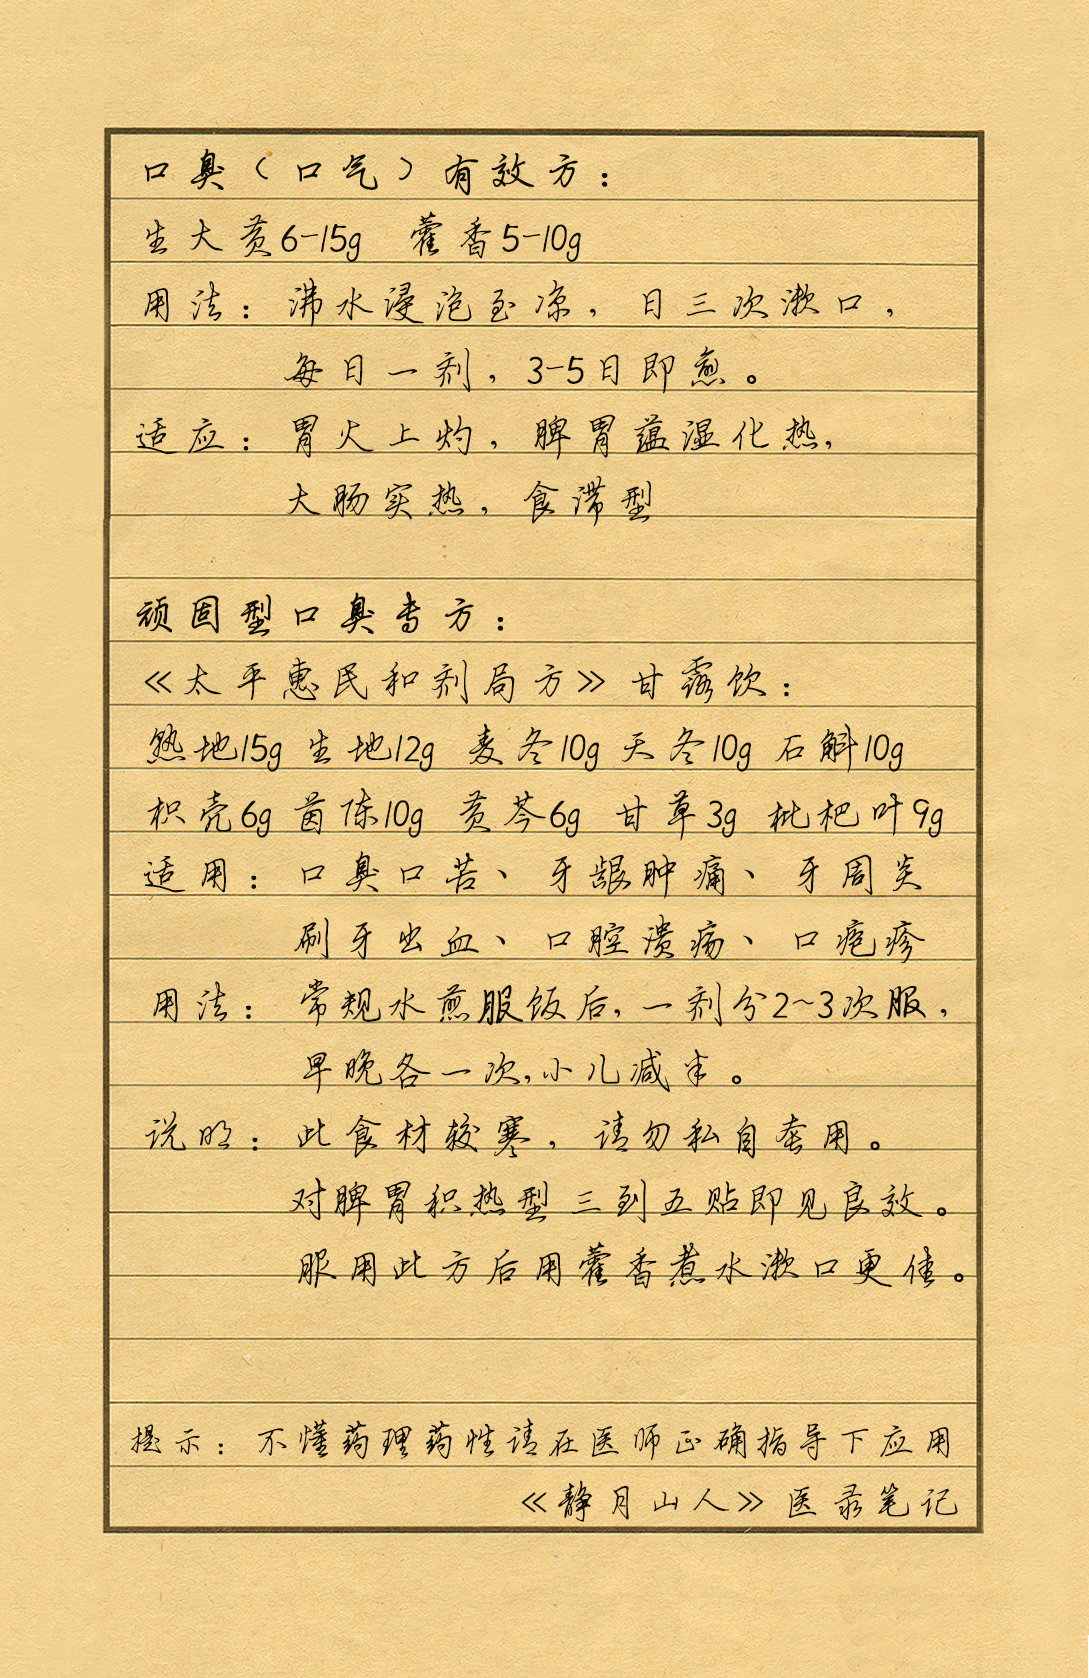 口臭（口气）有效方：
生大黄6-15g 藿香5-10g
用法：沸水浸泡至凉，日三次漱口，
每日一剂，3-5日即愈。
适应：胃火上灼，脾胃蕴湿化热，
大肠实热，食滞型
顽固型口臭专方：
《太平惠民和剂局方》甘露饮：
熟地15g 生地12g 麦冬10g 天冬10g 石斛10g
枳壳6g 茵陈10g 黄芩6g 甘草3g 枇杷叶9g
适用：口臭口苦、牙龈肿痛、牙周炎
刷牙出血、口腔溃疡、口疱疹
用法：常规水煎服饭后，一剂分2~3次服，
早晚各一次，小儿减半。
说明：此食材较寒，请勿私自套用。
对脾胃积热型三到五贴即见良效。
服用此方后用藿香煮水漱口更佳。
提示：不懂药理药性请在医师正确指导下应用
《静月山人》医录笔记